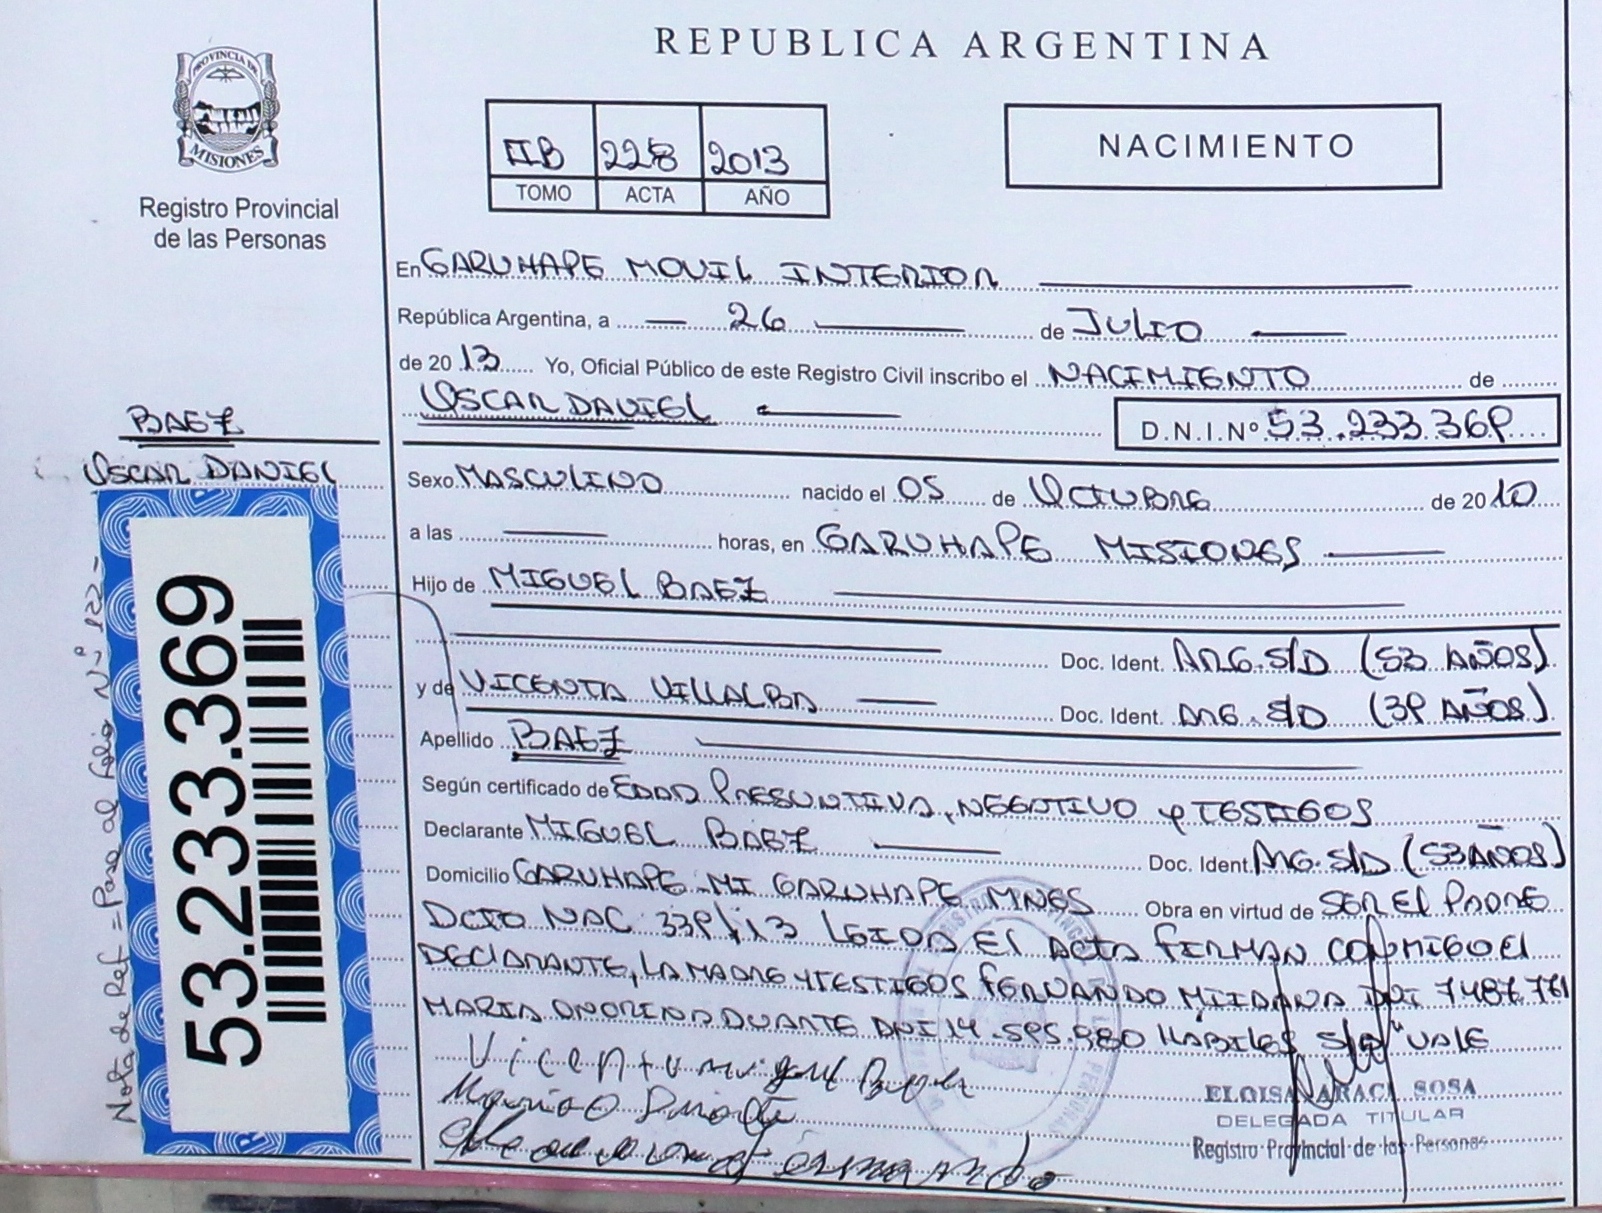 REPUBLICA ARGENTINA
PROVINCIA DE
MISIONES
Registro Provincial
de las Personas
IIB 228 2013
TOMO ACTA AÑO
NACIMIENTO
En GARUHAPE MOVIL INTERIOR
República Argentina, a 26 de JULIO
de 2013 Yo, Oficial Público de este Registro Civil inscribo el NACIMIENTO de
OSCAR DANIEL
D.N.I.Nº 53.233.369
BAEZ
OSCAR DANIEL
53.233.369
Nota de Ref = Pasa al folio Nº 122-
Sexo MASCULINO nacido el 05 de OCTUBRE de 2010
a las horas, en GARUHAPE MISIONES
Hijo de MIGUEL BAEZ
Doc. Ident. ARG. S/D (53 AÑOS)
y de VICENTA VILLALBA Doc. Ident. ARG. S/D (39 AÑOS)
Apellido BAEZ
Según certificado de EDAD PRESUNTIVA, NEGATIVO Y TESTIGOS
Declarante MIGUEL BAEZ Doc. Ident. ARG. S/D (53 AÑOS)
Domicilio GARUHAPE-MI GARUHAPE MNES Obra en virtud de SER EL PADRE
DCTO NAC 339/13 LEIDA EL ACTA FIRMAN CONMIGO EL
DECLARANTE, LA MADRE Y TESTIGOS FERNANDO MIÑARA DNI 7487.761
MARIA ONORINA DUARTE DNI 14.595.980 HABILES VALE
Vicenta miguel
Duarte
ELOISA ARACI SOSA
DELEGADA TITULAR
Registro Provincial de las Personas